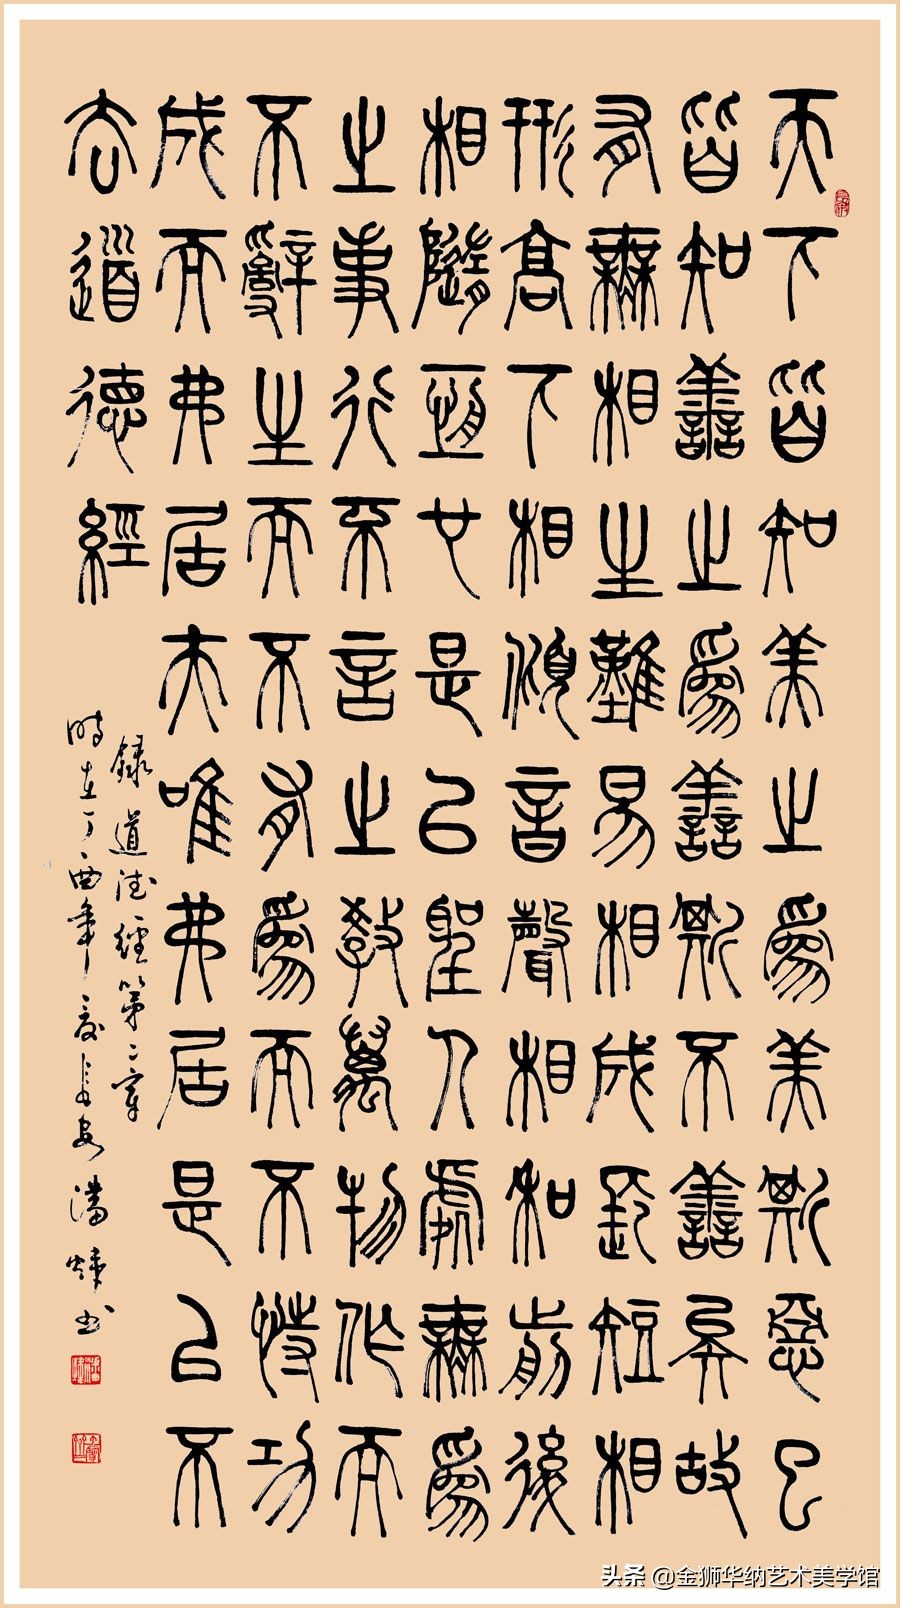 天下皆知美之爲美斯惡已
皆知善之爲善斯不善矣故
有無相生難易相成長短相
形高下相傾音聲相和前後
相隨恆也是以聖人處無爲
之事行不言之教萬物作而
不辭生而不有爲而不恃功
成而弗居夫唯弗居是以不
去道德經
錄道德經第二章
時在丁酉年長安潘煒書
头条 @金狮华纳艺术美学馆